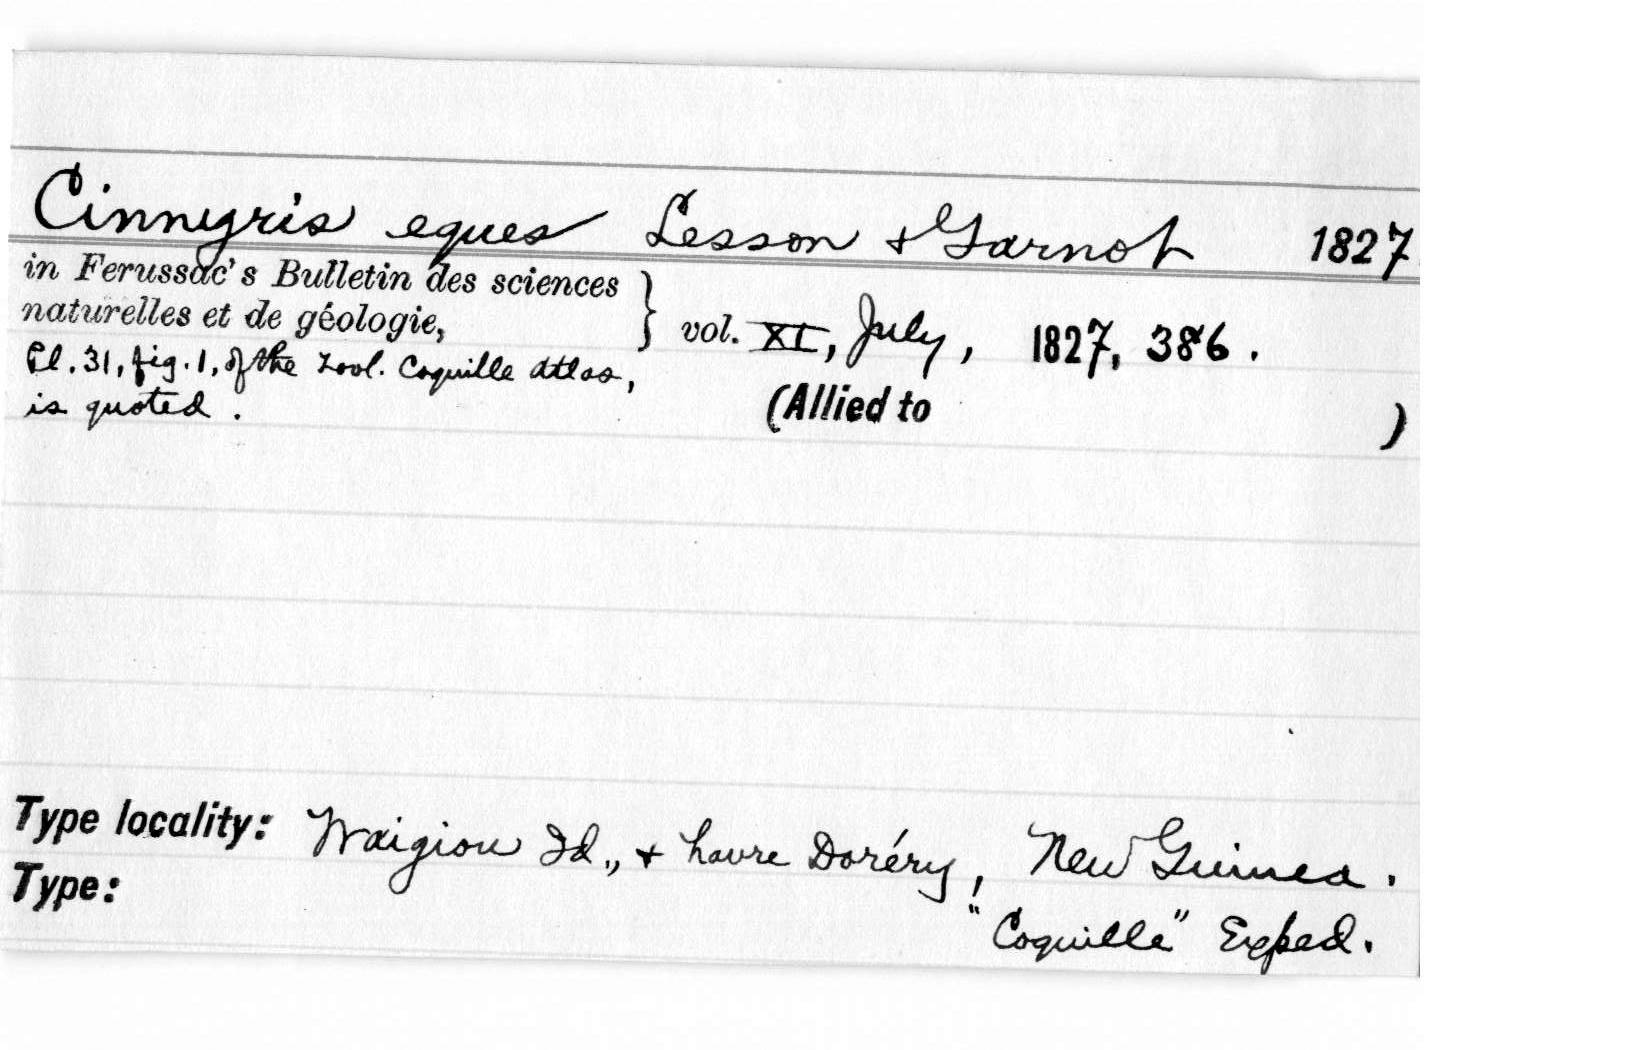 Cinnyris eques Lesson & Garnot 1827
in Ferussac's Bulletin des sciences
naturelles et de géologie, } vol. XI, July, 1827, 386.
Pl. 31, fig. 1, of the Zool. Coquille Atlas,
is quoted.
(Allied to )
Type locality: Waigiou Id., & havre Doréry, New Guinea.
Type:
"Coquille" Exped.